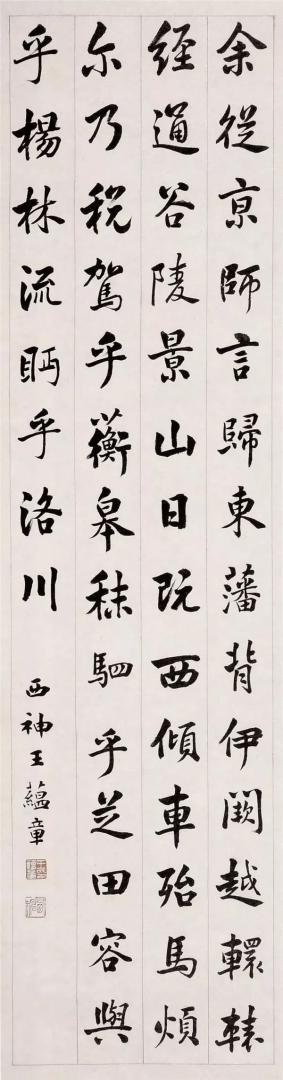 余從京師言歸東藩背伊闕越轘轅
經通谷陵景山日既西傾車殆馬煩
尓乃税駕乎蘅皋秣駟乎芝田容與
乎楊林流眄乎洛川
西神王蘊章